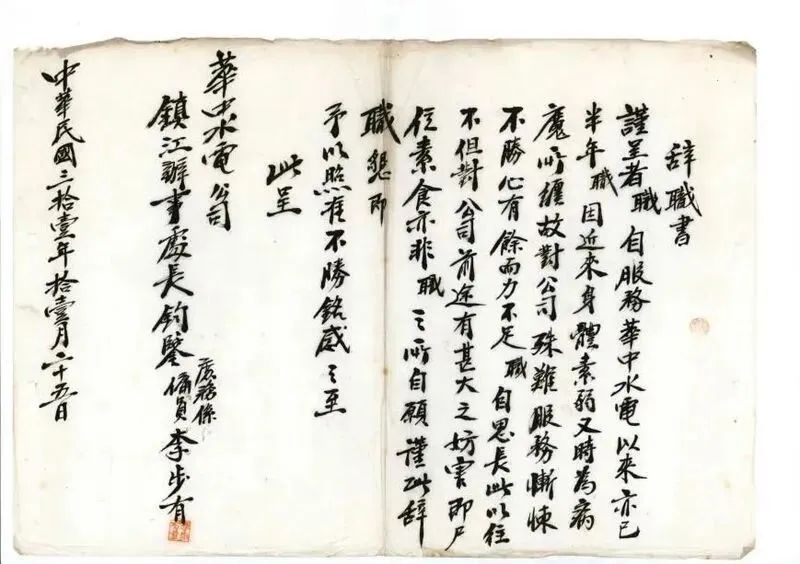 辞職書
謹呈者職自服務華中水電以來亦已
半年職因近來身體素弱又時為病
魔所纏故對公司殊難服務慚悚
不勝心有餘而力不足職自思長此以往
不但對公司前途有甚大之妨害即尸
位素食亦非職之所自願謹此辞
職懇即
予以照准不勝銘感之至
此呈
華中水電公司
鎮江辦事處長鈞鑒
庶務係
傭員李步有
中華民國三拾壹年拾壹月二十五日